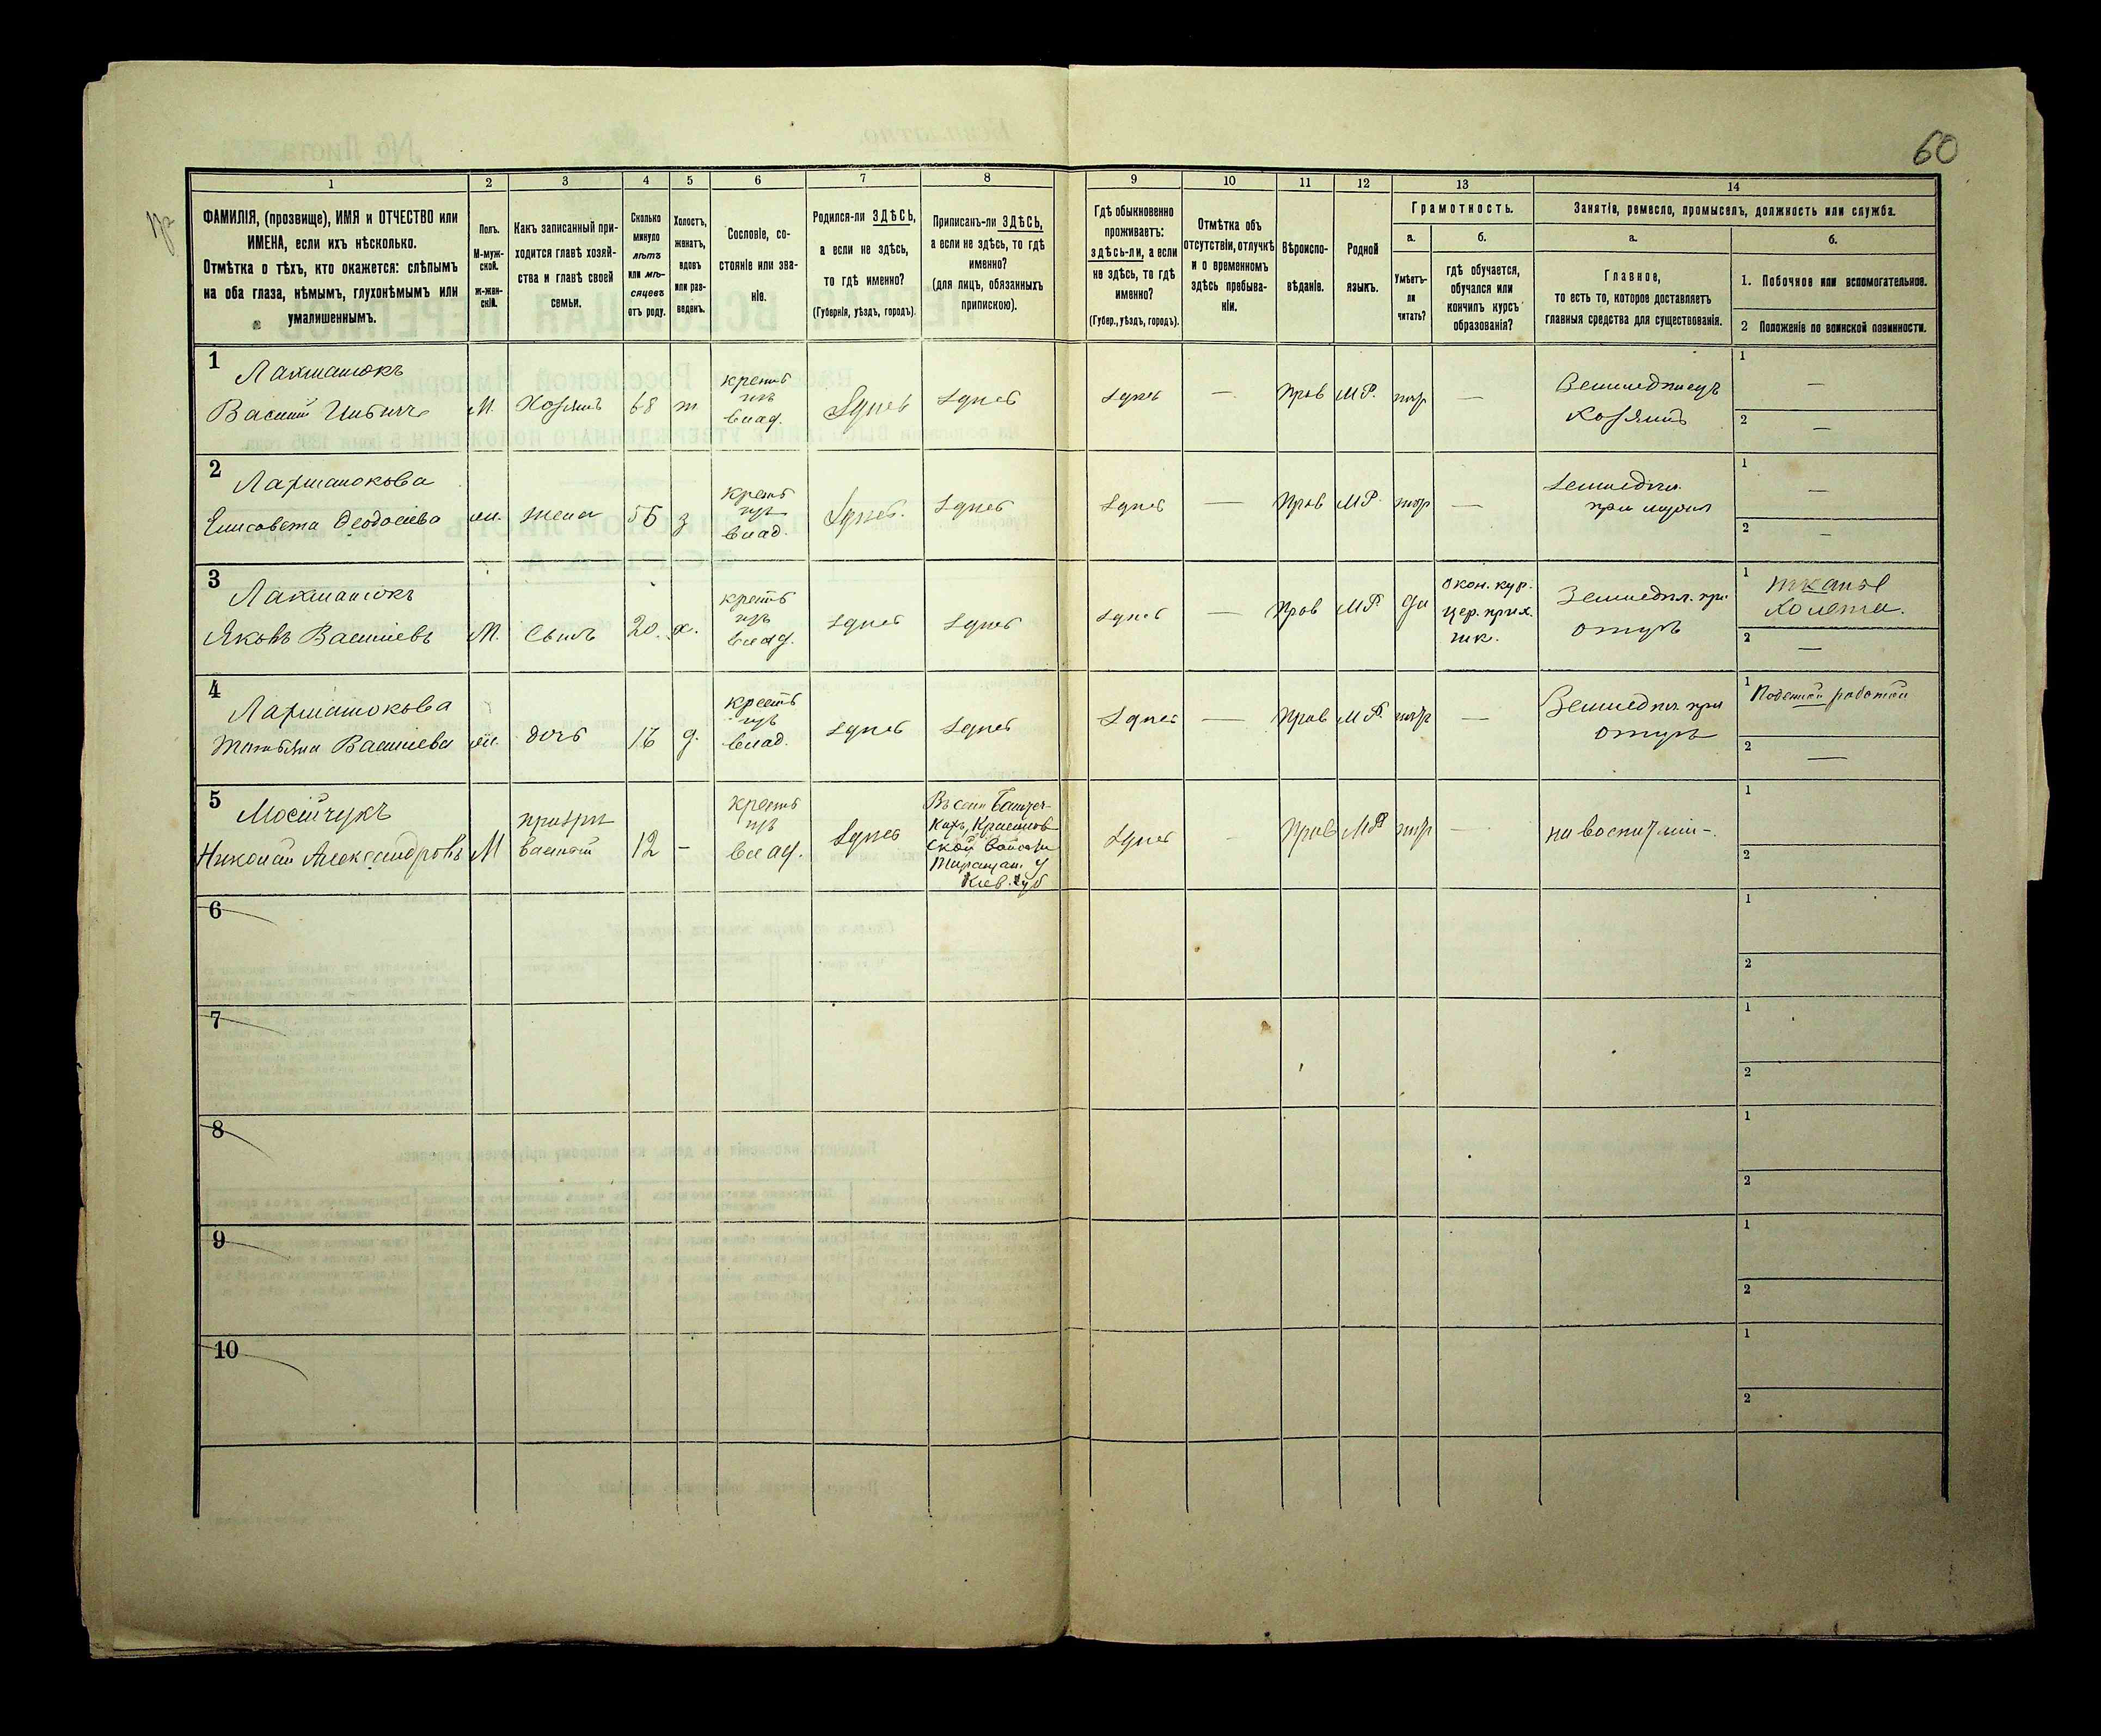 60
1 2 3 4 5 6 7 8 9 10 11 12 13 14
ФАМИЛІЯ, (прозвище), ИМЯ и ОТЧЕСТВО или
ИМЕНА, если ихъ нѣсколько.
Отмѣтка о тѣхъ, кто окажется: слѣпымъ
на оба глаза, нѣмымъ, глухонѣмымъ или
умалишеннымъ.
Полъ.
М-муж-
ской.
ж-жен-
скій.
Какъ записанный при-
ходится главѣ хозяй-
ства и главѣ своей
семьи.
Сколько
минуло
лѣтъ
или мѣ-
сяцевъ
отъ роду.
Холостъ,
женатъ,
вдовъ
или раз-
веденъ.
Сословіе, со-
стояніе или зва-
ніе.
Родился-ли ЗДѢСЬ,
а если не здѣсь,
то гдѣ именно?
(Губернія, уѣздъ, городъ).
Приписанъ-ли ЗДѢСЬ,
а если не здѣсь, то гдѣ
именно?
(для лицъ, обязанныхъ
припискою).
Гдѣ обыкновенно
проживаетъ:
здѣсь-ли, а если
не здѣсь, то гдѣ
именно?
(Губер., уѣздъ, городъ).
Отмѣтка объ
отсутствіи, отлучкѣ
и о временномъ
здѣсь пребыва-
ніи.
Вѣроиспо-
вѣданіе.
Родной
языкъ.
Грамотность.
а.
Умѣетъ-
ли
читать?
б.
гдѣ обучается,
обучался или
кончилъ курсъ
образованія?
Занятіе, ремесло, промыселъ, должность или служба.
а.
Главное,
то есть то, которое доставляетъ
главныя средства для существованія.
б.
1. Побочное или вспомогательное.
2 Положеніе по воинской повинности.
1
Лахматюкъ
Василій
М. Хозяинъ 68 ж
кресть
изъ
влад.
здѣсь здѣсь здѣсь — Прав М.Р. нѣтъ —
Земледѣлецъ
хозяинъ
1 —
2 —
2
Лахматюкова
Елисавета Ѳеодосіева
ж. жена 56 з
крестъ
изъ
влад.
здѣсь. здѣсь здѣсь — Прав М.Р. нѣтъ —
земледѣл.
при мужѣ
1 —
2 —
3
Лахматюкъ
Яковъ Васильевъ
М. Сынъ 20. х.
крестъ
изъ
влад.
здѣсь здѣсь здѣсь — Прав М.Р. да
окон. кур.
цер. прих.
шк.
Земледѣл. при
отцѣ
1 тканье
холста.
2 —
4
Лахматюкова
Татьяна Васильева
ж. дочь 16 д.
крестъ
изъ
влад.
здѣсь здѣсь здѣсь — Прав М.Р. нѣтъ —
Земледѣл. при
отцѣ
1 Поденной работой
2 —
5
Мосійчукъ
Николай Александровъ
М
призрѣ
ваемый
12 —
крестъ
изъ
влад.
здѣсь
Въ селѣ
Тараща. у
Кіев. губ
здѣсь - Прав М.Р. нѣтъ —
на воспитаніи -.
1
2
6
1
2
7
1
2
8
1
2
9
1
2
10
1
2